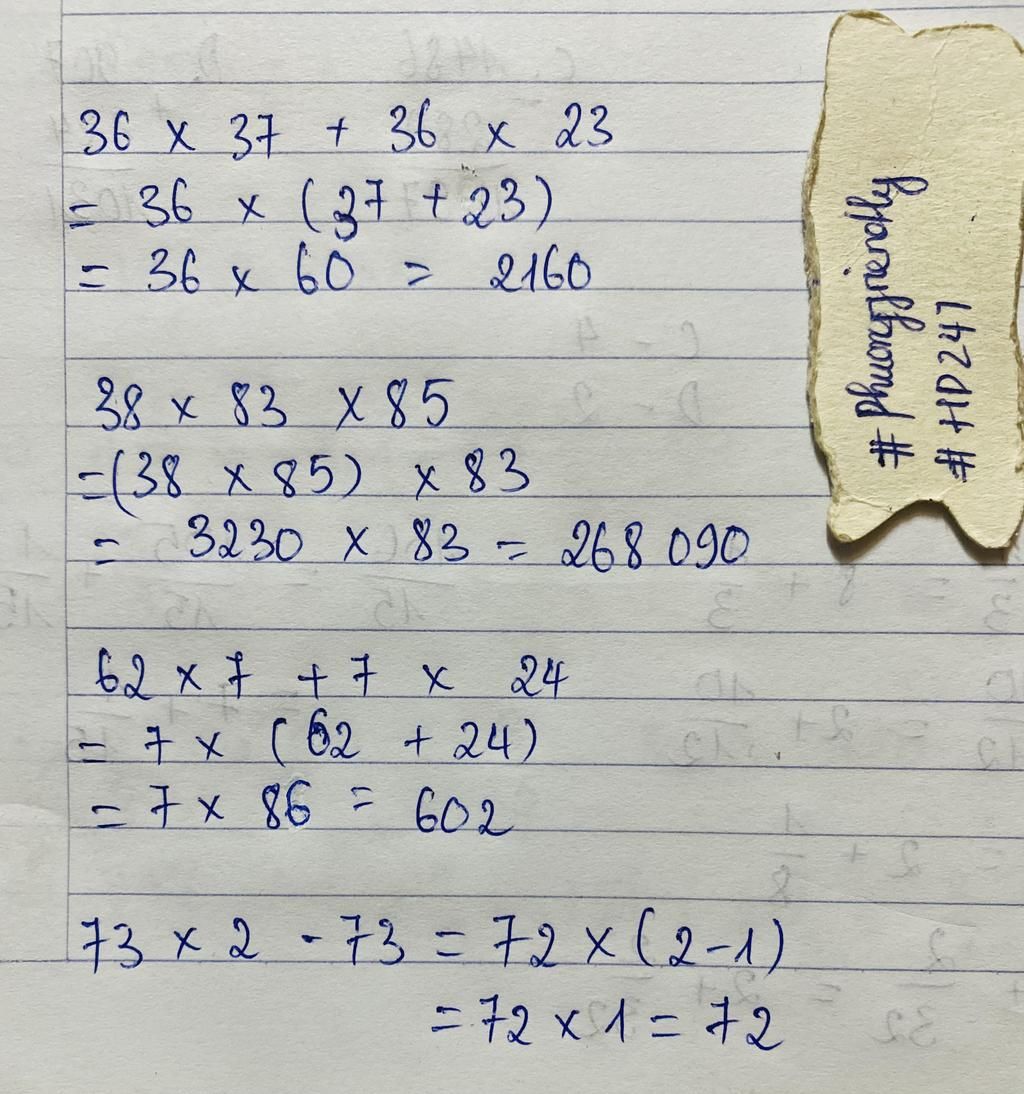 36 × 37 + 36 × 23
= 36 × (37 + 23)
= 36 × 60 = 2160
38 × 83 × 85
=(38 × 85) × 83
= 3230 × 83 = 268 090
62 × 7 + 7 × 24
= 7 × (62 + 24)
= 7 × 86 = 602
73 × 2 - 73 = 72 × (2-1)
= 72 × 1 = 72
# HD247